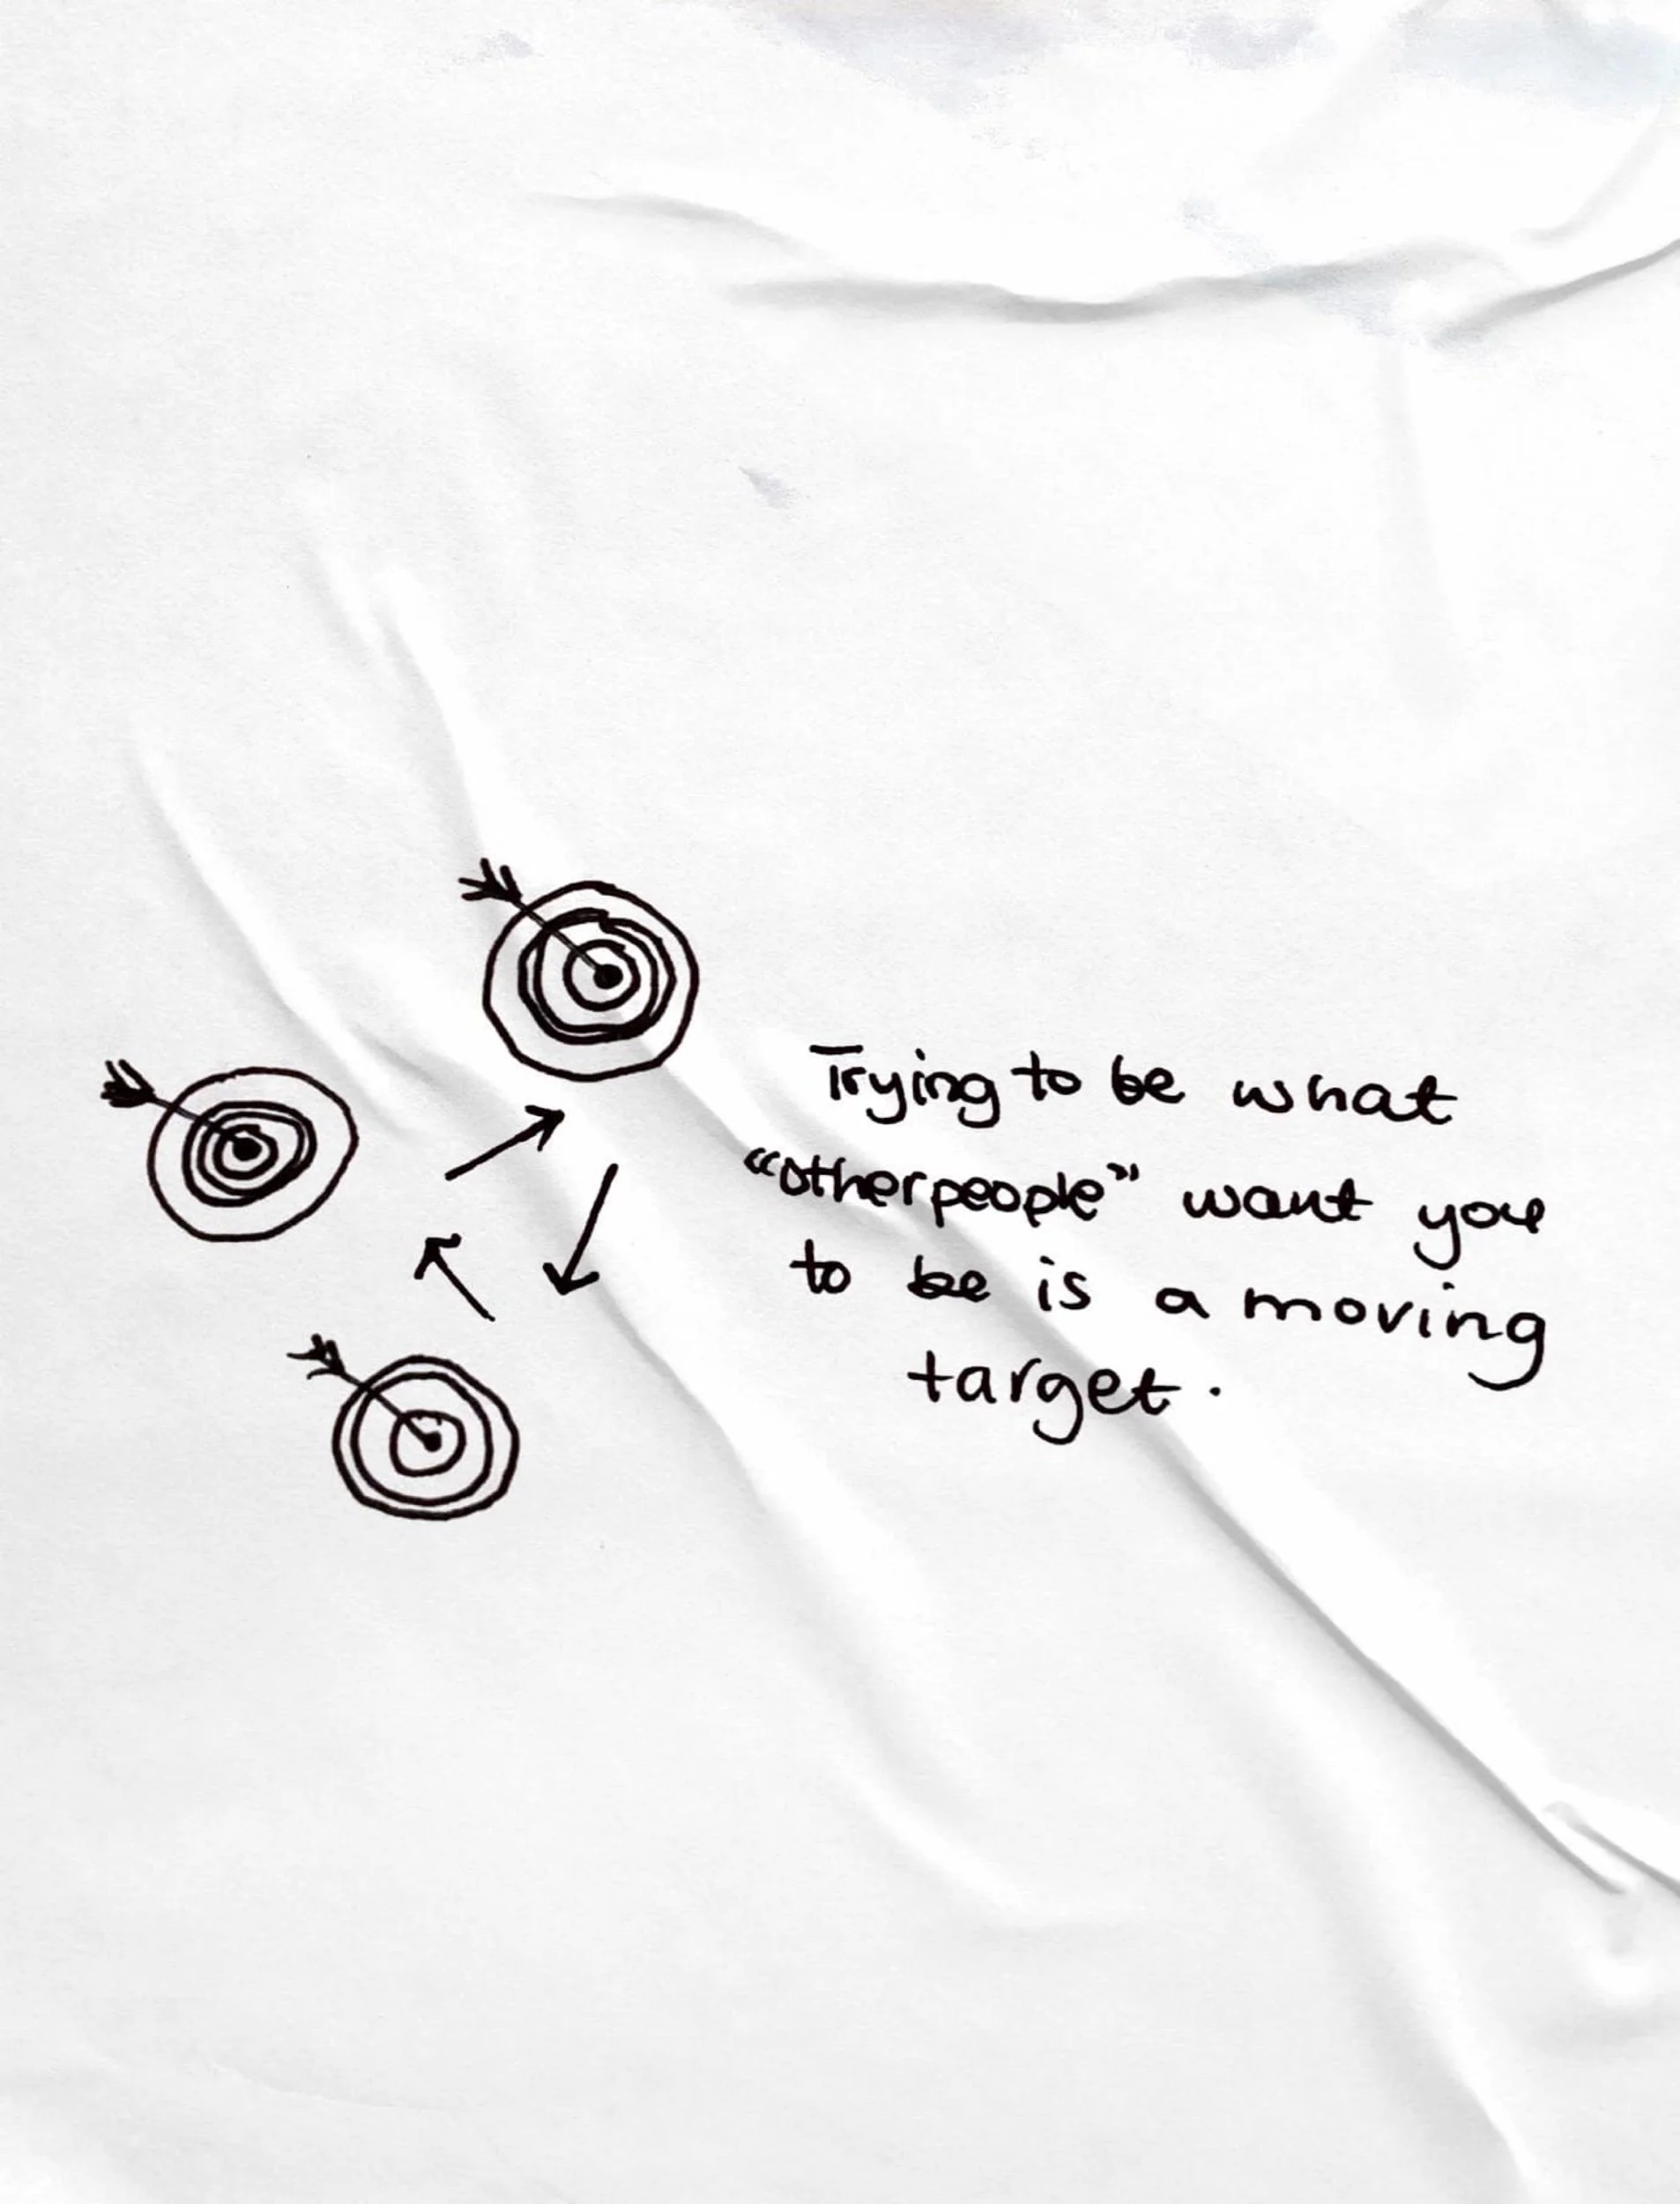 Trying to be what
“other people” want you
to be is a moving
target.